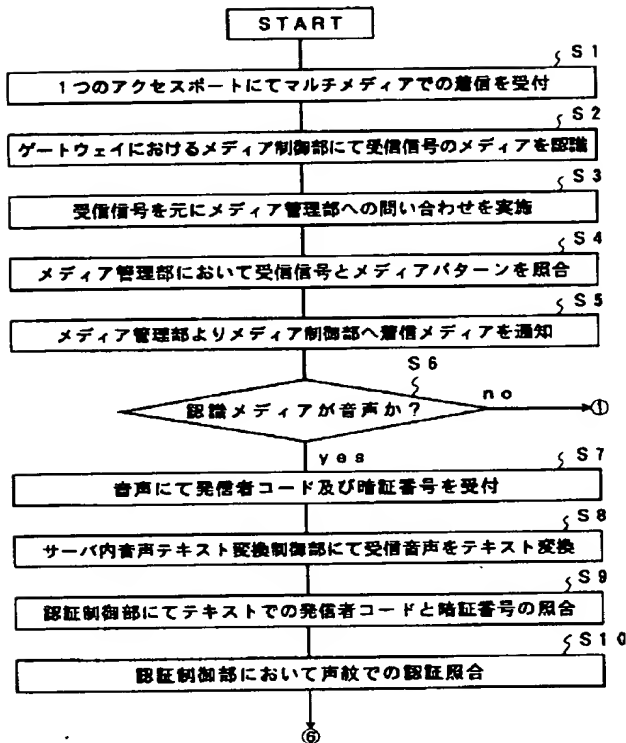 START
S1
1つのアクセスポートにてマルチメディアでの着信を受付
S2
ゲートウェイにおけるメディア制御部にて受信信号のメディアを認識
S3
受信信号を元にメディア管理部への問い合わせを実施
S4
メディア管理部において受信信号とメディアパターンを照合
S5
メディア管理部よりメディア制御部へ着信メディアを通知
S6
認識メディアが音声か？
no
①
yes
S7
音声にて発信者コード及び暗証番号を受付
S8
サーバ内音声テキスト変換制御部にて受信音声をテキスト変換
S9
認証制御部にてテキストでの発信者コードと暗証番号の照合
S10
認証制御部において声紋での認証照合
⑥